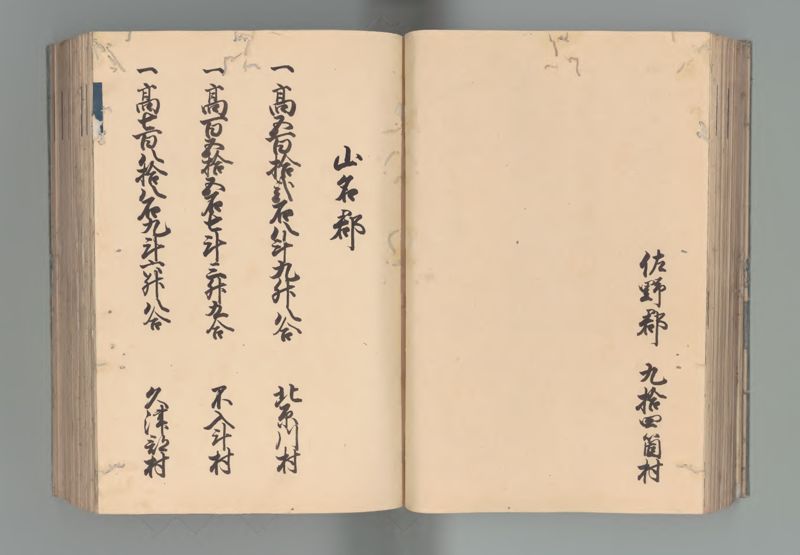 佐野郡 九拾四箇村
山名郡
一高五百拾弐石八斗九升八合 北原川村
一高百五拾五石七斗三升五合 不入斗村
一高七百八拾八石九斗六升八合 久津部村